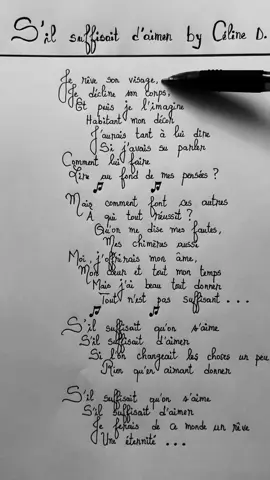 S'il suffisait d'aimer by Céline D.
Je rêve son visage,
Je décline son corps,
Et puis je l'imagine
Habitant mon décor
J'aurais tant à lui dire
Si j'avais su parler
Comment lui faire
Lire au fond de mes pensées ?
Mais comment font ces autres
À qui tout réussit ?
Qu'on me dise mes fautes,
Mes chimères aussi
Moi, j'offrirais mon âme,
Mon cœur et tout mon temps
Mais j'ai beau tout donner
Tout n'est pas suffisant ...
S'il suffisait qu'on s'aime
S'il suffisait d'aimer
Si l'on changeait les choses un peu
Rien qu'en aimant donner
S'il suffisait qu'on s'aime
S'il suffisait d'aimer
Je ferais de ce monde un rêve
Une éternité ...